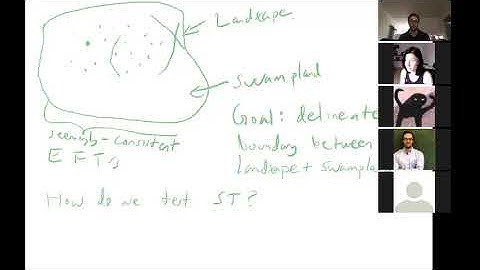 Landscape
Swampland
Goal: delineate
boundary between
Landscape + swampla
seemingly-consistent
EFTs
How do we test ST?